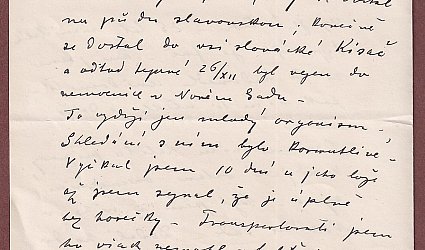 na půdu slavonskou; konečně
se dostal do vsi slovácké Kisač
a odtud teprve 26/XII byl vezen do
nemocnice v Novém Sadu –
To vydrží jen mladý organism.
Shledání s ním bylo
jsem 10 dní u jeho lože
až jsem, že je úplně
bez horečky. – Transportovati jsem
ho však